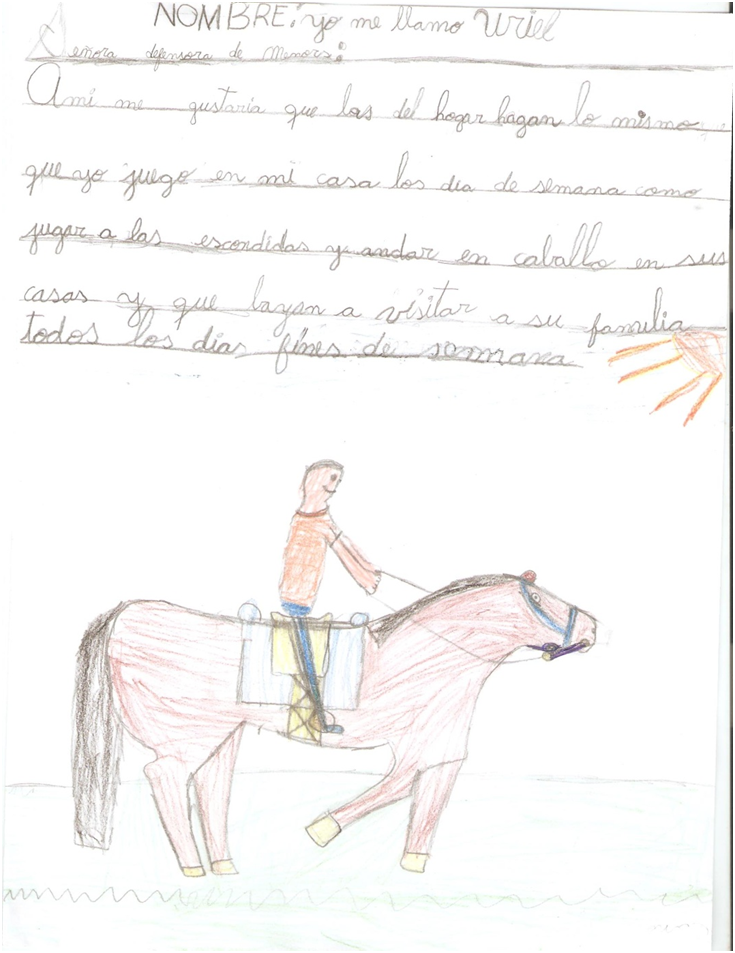 NOMBRE: yo me llamo Uriel
Señora defensora de Menors:
A mi me gustaria que las del hogar hagan lo mismo
que yo juego en mi casa los dia de semana como
jugar a las escondidas y andar en caballo en sus
casas y que bayan a visitar a su familia
todos los días fines de semana